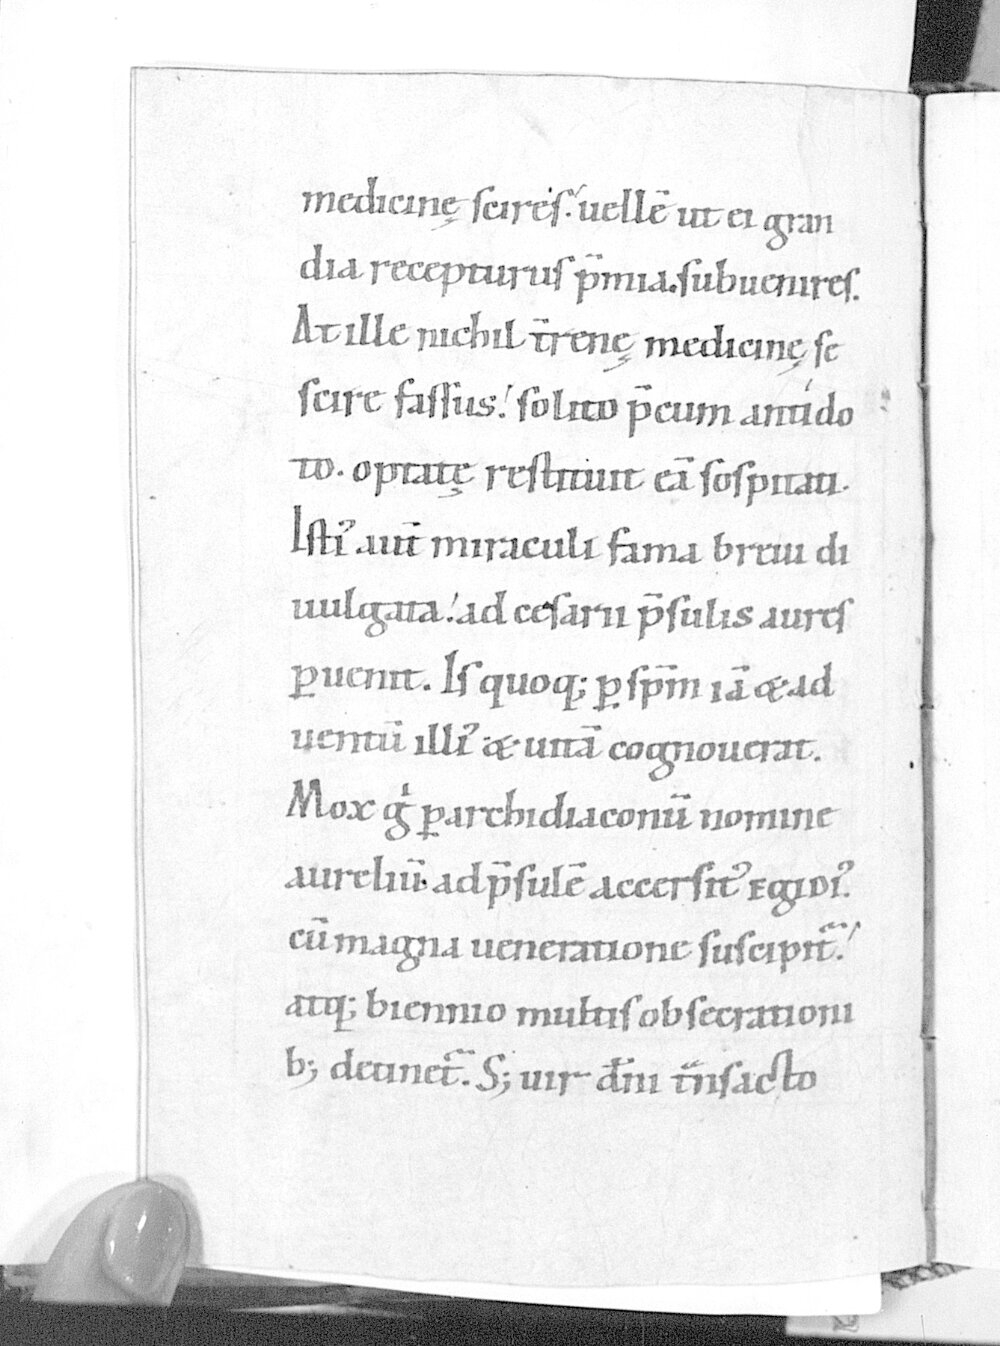 medicinę scires. uellē ut ei gran
dia recepturus p̄mia. subuenires.
At ille nichil t̄renę medicinę se
scire fassus. solito p̄cum antido
to. optatę restituit eā sospitati.
Istiꝰ aut̄ miraculi fama breui di
uulgata. ad cesarii p̄sulis aures
ꝑuenit. Is quoq; ꝑ sp̄m iā & ad
uentū illiꝰ & uitā cognouerat.
Mox gͥ ꝑ archidiaconū nomine
aureliū. ad p̄sulē accersitꝰ EgIDIꝰ.
cū magna ueneratione suscipit᷑.
atq; biennio multis obsecrationi
b; detinet᷑. S; uir dn̄i t̄nsacto